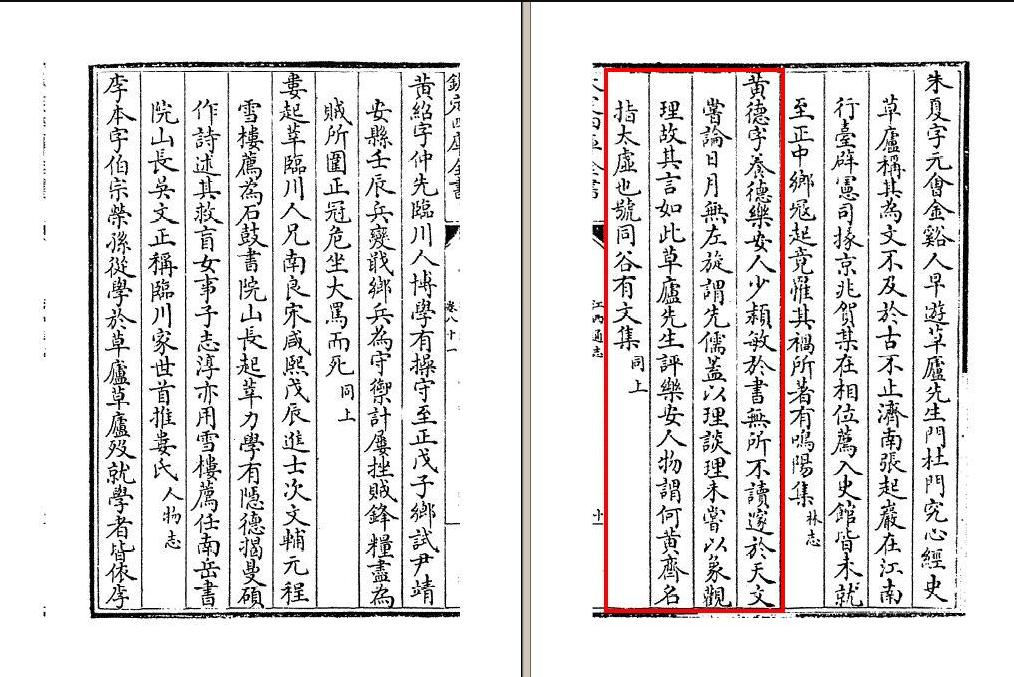 朱夏字元會金谿人早遊草廬先生門杜門究心經史
草廬稱其為文不及於古不止濟南張起巖在江南
行臺辟憲司掾京兆賀某在相位薦入史館皆未就
至正中鄉冦起竟罹其禍所著有鳴陽集林志
黃德字養德樂安人少穎敏於書無所不讀邃於天文
嘗論日月無左旋謂先儒蓋以理談理未嘗以象觀
理故其言如此草廬先生評樂安人物謂何黃齊名
指太虛也號同谷有文集同上
江西通志
十
欽定四庫全書
卷八十一
黃紹字仲先臨川人博學有操守至正戊子鄉試尹靖
安縣壬辰兵變戢鄉兵為守禦計屢挫賊鋒糧盡為
賊所圍正冠危坐大罵而死同上
婁起莘臨川人兄南良宋咸熙戊辰進士次文輔元程
雪樓薦為石鼓書院山長起莘力學有隱德揭曼碩
作詩述其救盲女事子志淳亦用雪樓薦任南岳書
院山長吳文正稱臨川家世首推婁氏人物志
李本字伯宗榮孫從學於草廬草廬歿就學者皆依李